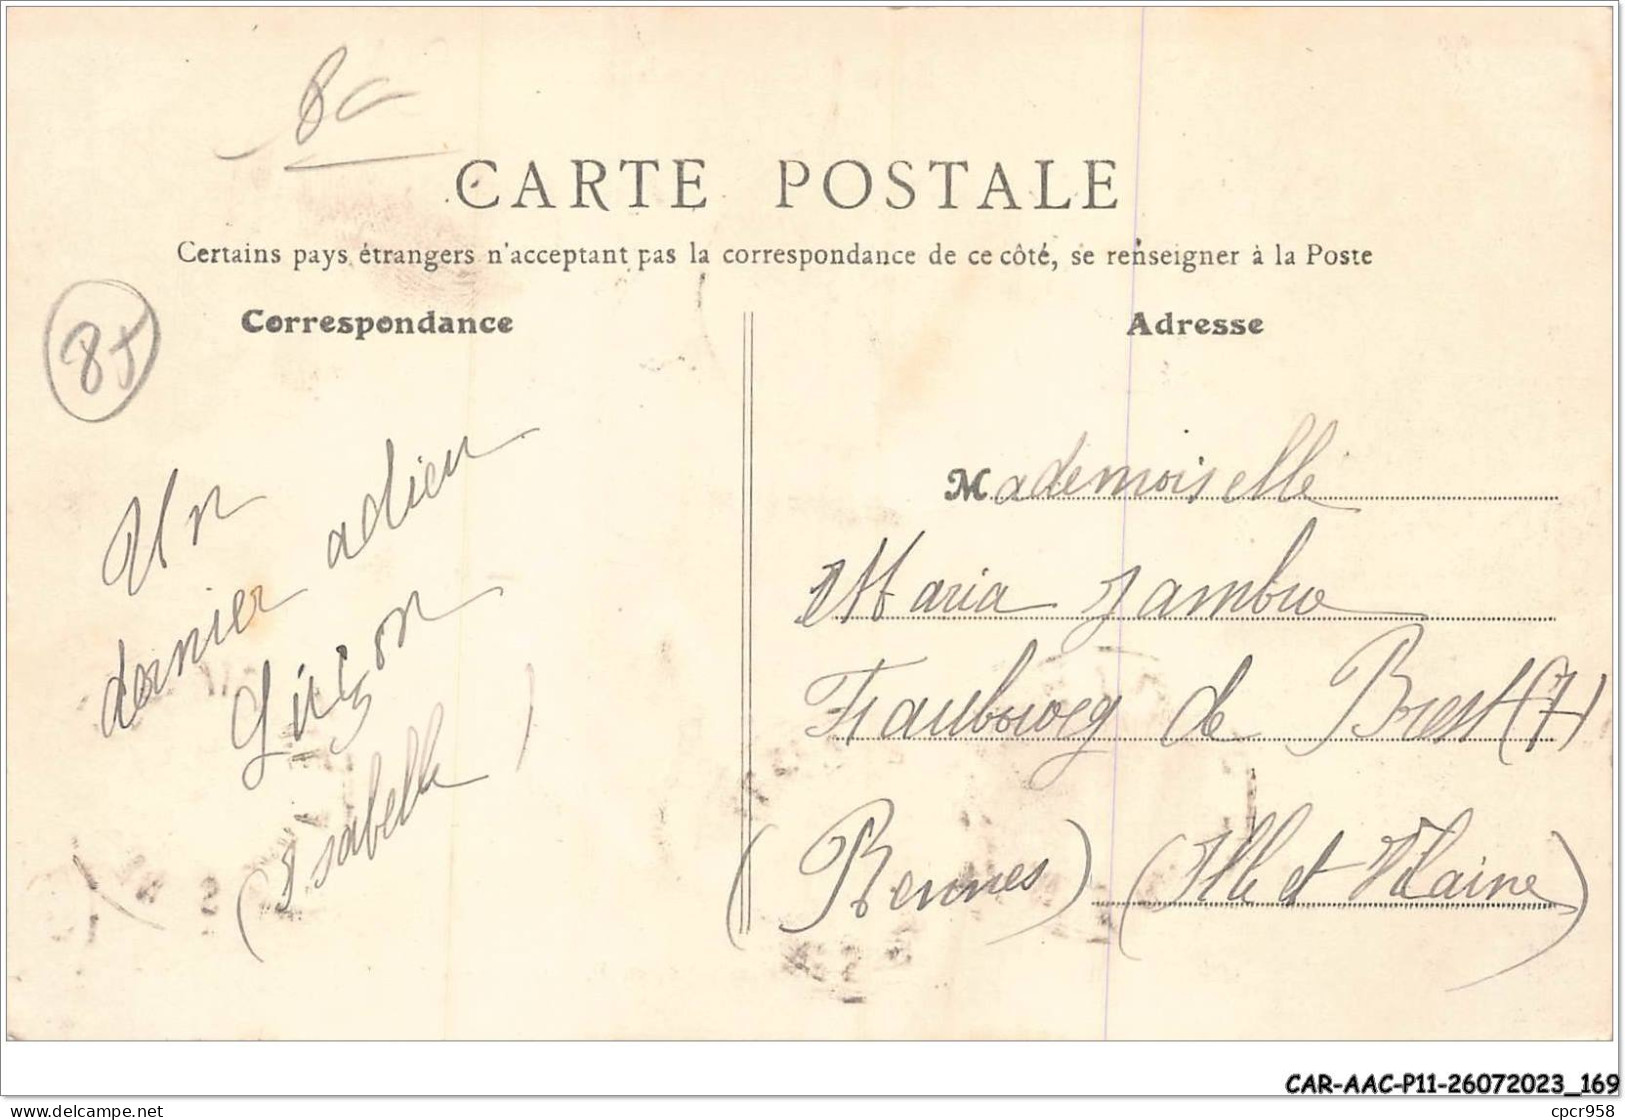 8c
CARTE POSTALE
Certains pays étrangers n'acceptent pas la correspondance de ce côté, se renseigner à la Poste
Correspondance
Adresse
85
Un
dernier adieu
Luçon
(Isabelle)
Mademoiselle
Maria
Faubourg de Brest (7)
(Rennes) (Ille et Vilaine)
CAR-AAC-P11-26072023_169
www.delcampe.net
cpcr958